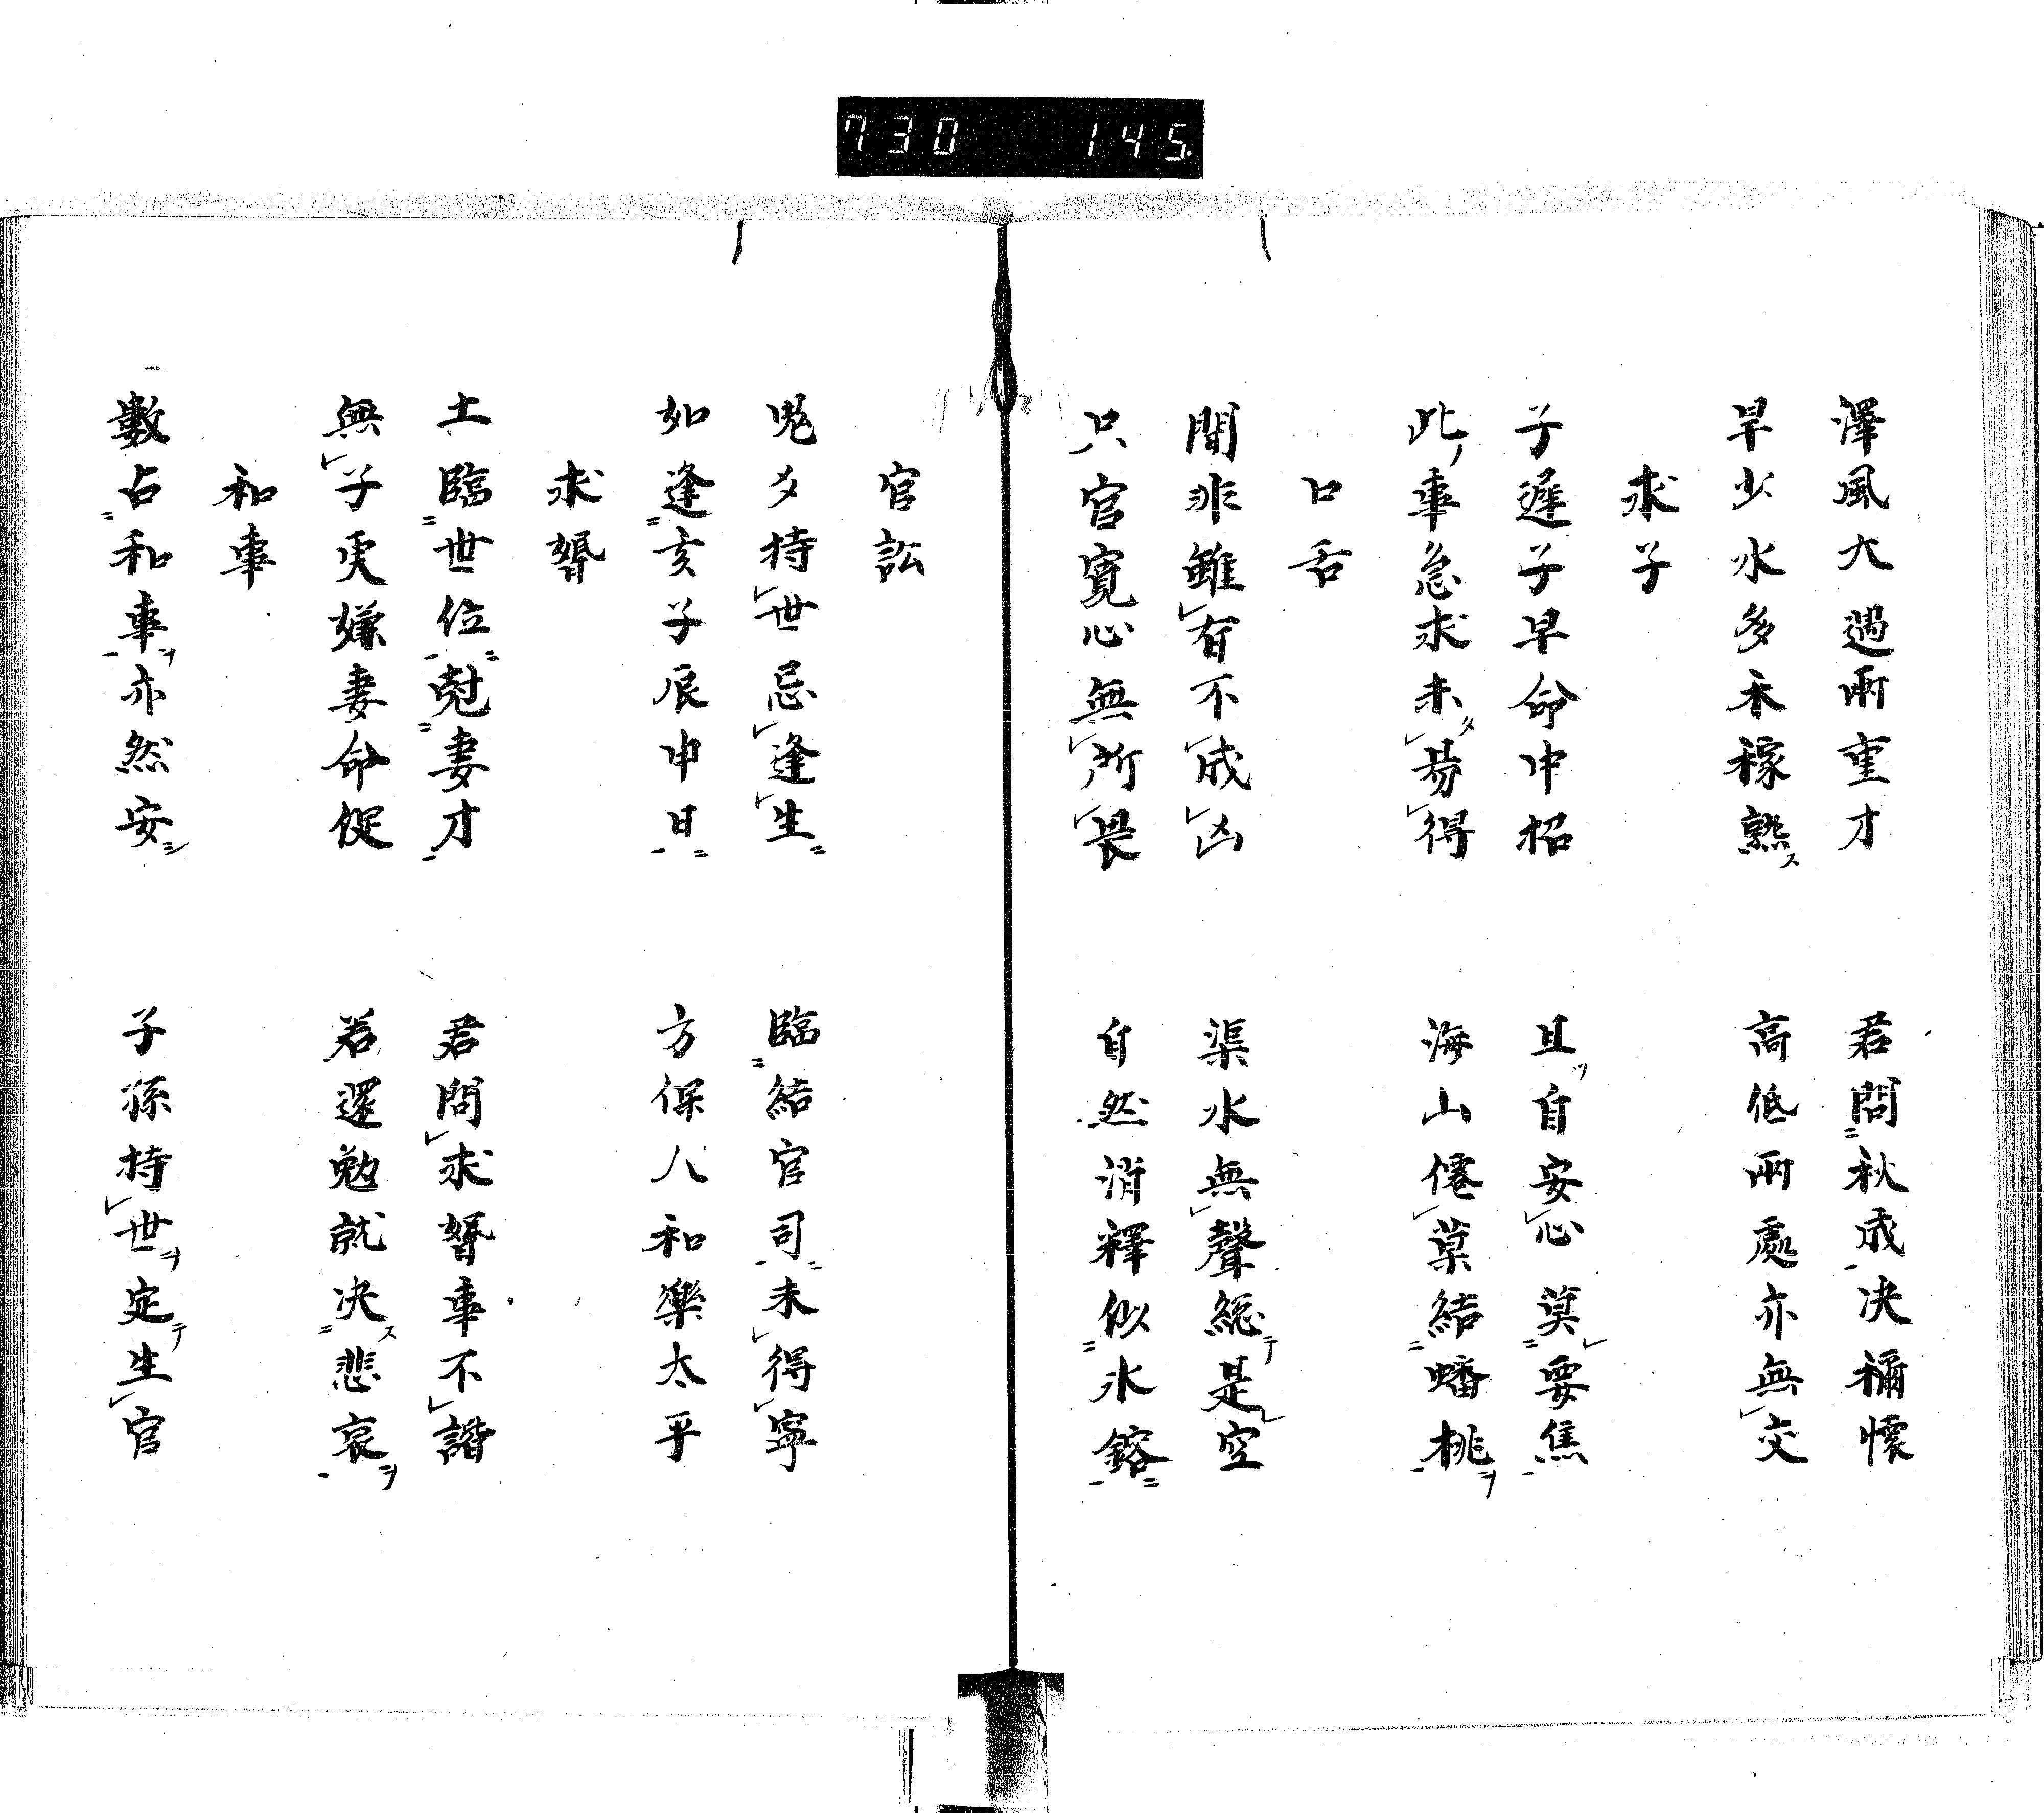 730 145
澤風大過兩重才 君問秋成决稱懷
早少水多禾稼熟ス 高低兩處亦無交
求子
子遲子早命中招 且ツ自安心莫要焦
此ノ事急求未タ易得 海山僊菓結蟠桃ヲ
口舌
閑非雖有不成凶 渠水無聲総テ是空
只官寬心無所畏 自然消釋似氷鎔
官訟
鬼爻持世忌逢生 臨結官司未得寧
如逢亥子辰申日 方保人和樂太平
求婚
土臨世位尅妻才 君問求婚事不諧
無子更嫌妻命促 若還勉就决ス悲哀ヲ
和事
數占和事ヲ亦然安シ 子孫持世ヲ定テ生官